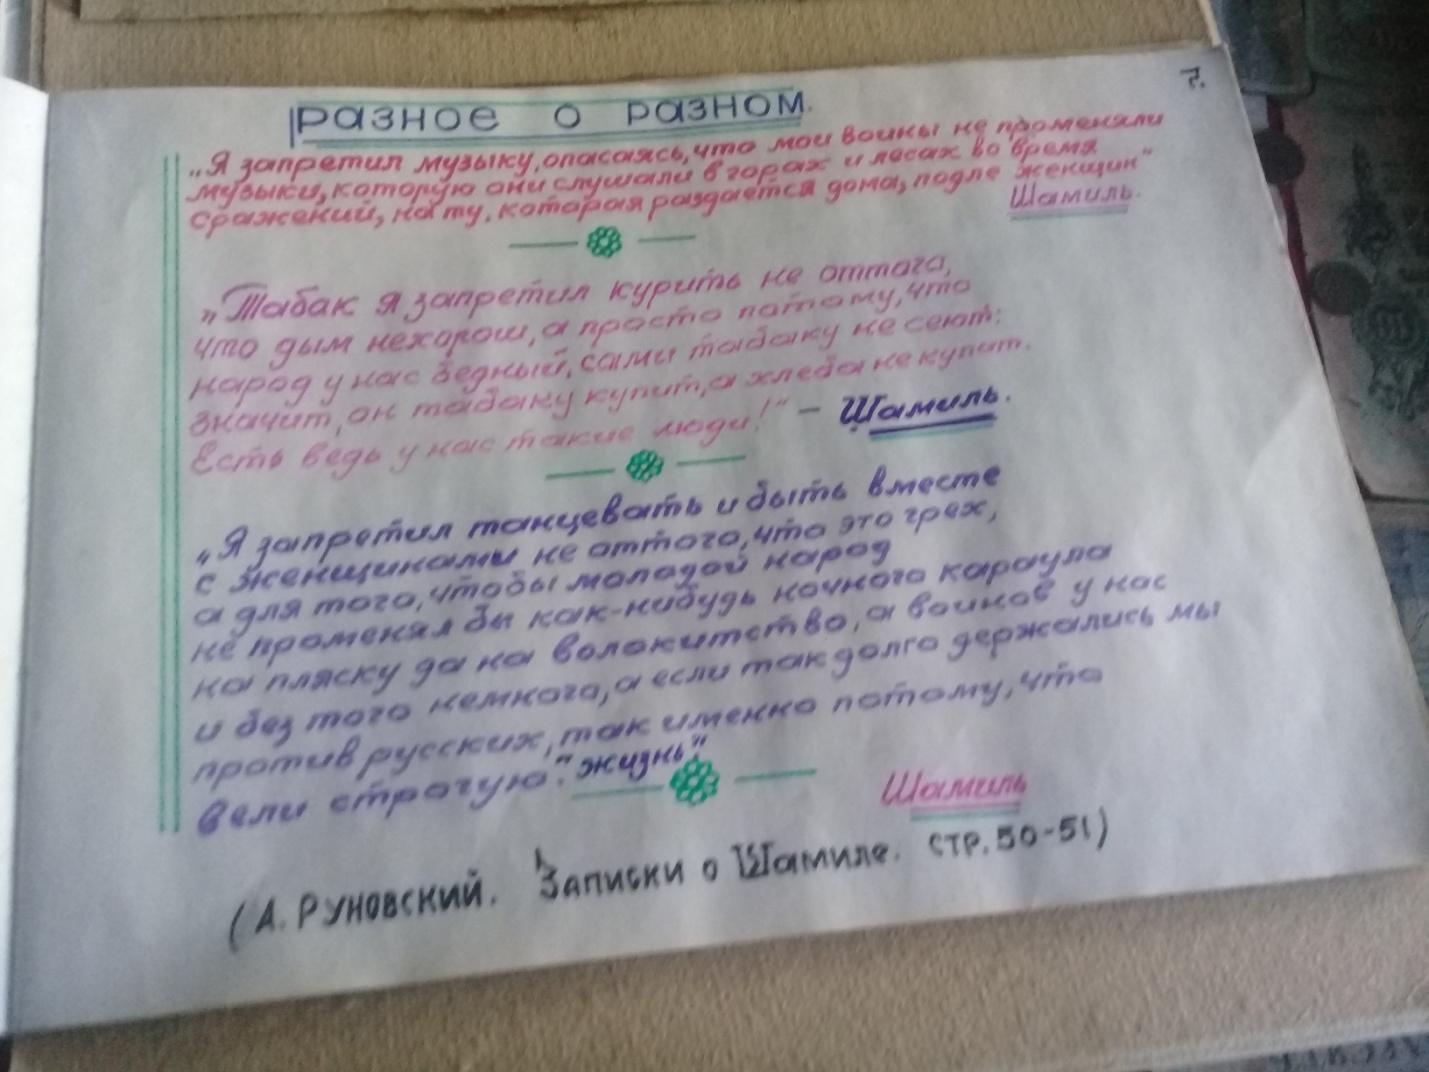 7.
РАЗНОЕ О РАЗНОМ.
„Я запретил музыку, опасаясь, что мои воины не променяли
музыки, которую они слушали в горах и лесах во время
сражений, на ту, которая раздаётся дома, подле женщин“
Шамиль.
„Табак я запретил курить не оттого,
что дым нехорош, а просто потому, что
народ у нас бедный, сами табаку не сеют:
значит, он табаку купит, а хлеба не купит.
Есть ведь у нас такие люди!“ – Шамиль.
„Я запретил танцевать и быть вместе
с женщинами не оттого, что это грех,
а для того, чтобы молодой народ
не променял бы как-нибудь ночного караула
на пляску да на волокитство, а воинов у нас
и без того немного, а если так долго держались мы
против русских, так именно потому, что
вели строгую "жизнь“.
Шамиль
(А. РУНОВСКИЙ. Записки о Шамиле. стр. 50-51)